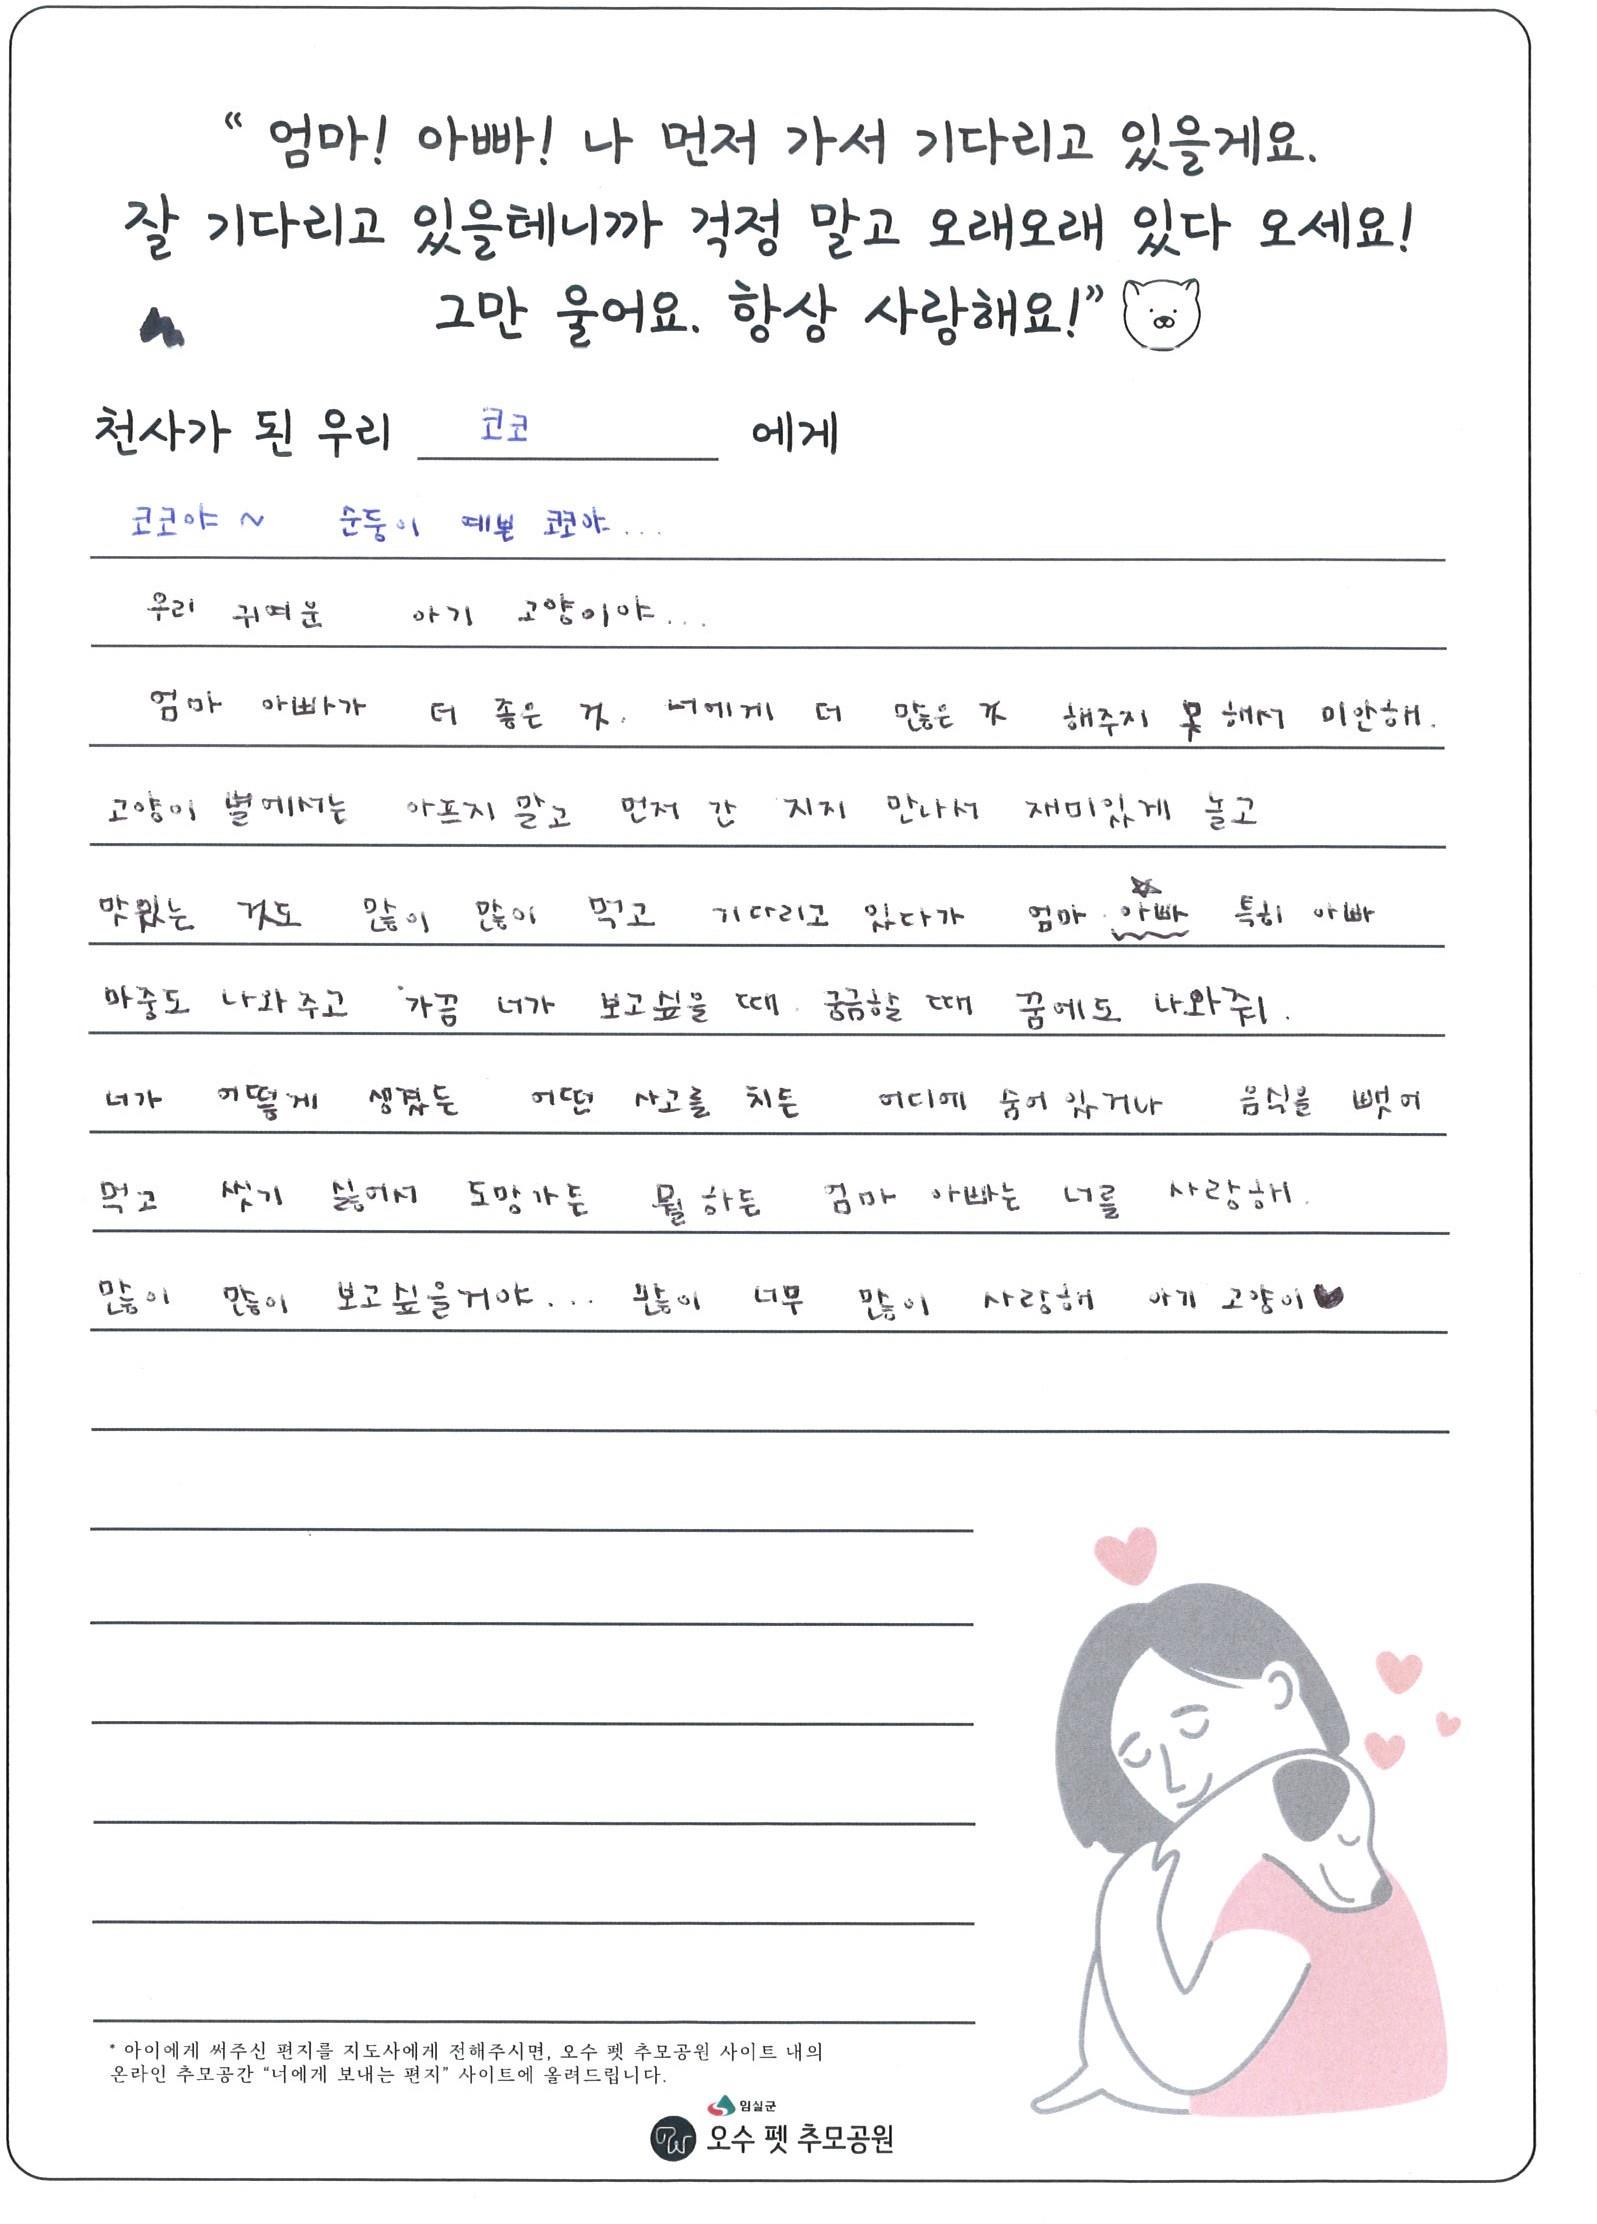 “ 엄마! 아빠! 나 먼저 가서 기다리고 있을게요.
잘 기다리고 있을테니까 걱정 말고 오래오래 있다 오세요!
그만 울어요. 항상 사랑해요!”
천사가 된 우리 코코 에게
코코야 ~ 순둥이 예쁜 코코야...
우리 귀여운 아기 고양이야...
엄마 아빠가 더 좋은 것. 너에게 더 많은 것 해주지 못 해서 미안해.
고양이 별에서는 아프지 말고 먼저 간 지지 만나서 재미있게 놀고
맛있는 것도 많이 많이 먹고 기다리고 있다가 엄마 아빠 특히 아빠
마중도 나와주고 가끔 너가 보고싶을 때. 궁금할 때 꿈에도 나와줘.
너가 어떻게 생겼든 어떤 사고를 치든 어디에 숨어있거나 음식을 뺏어
먹고 씻기 싫어서 도망가든 뭘 하든 엄마 아빠는 너를 사랑해.
많이 많이 보고싶을거야... 많이 너무 많이 사랑해 아기 고양이♥
* 아이에게 써주신 편지를 지도사에게 전해주시면, 오수 펫 추모공원 사이트 내의
온라인 추모공간 “너에게 보내는 편지” 사이트에 올려드립니다.
임실군
오수 펫 추모공원